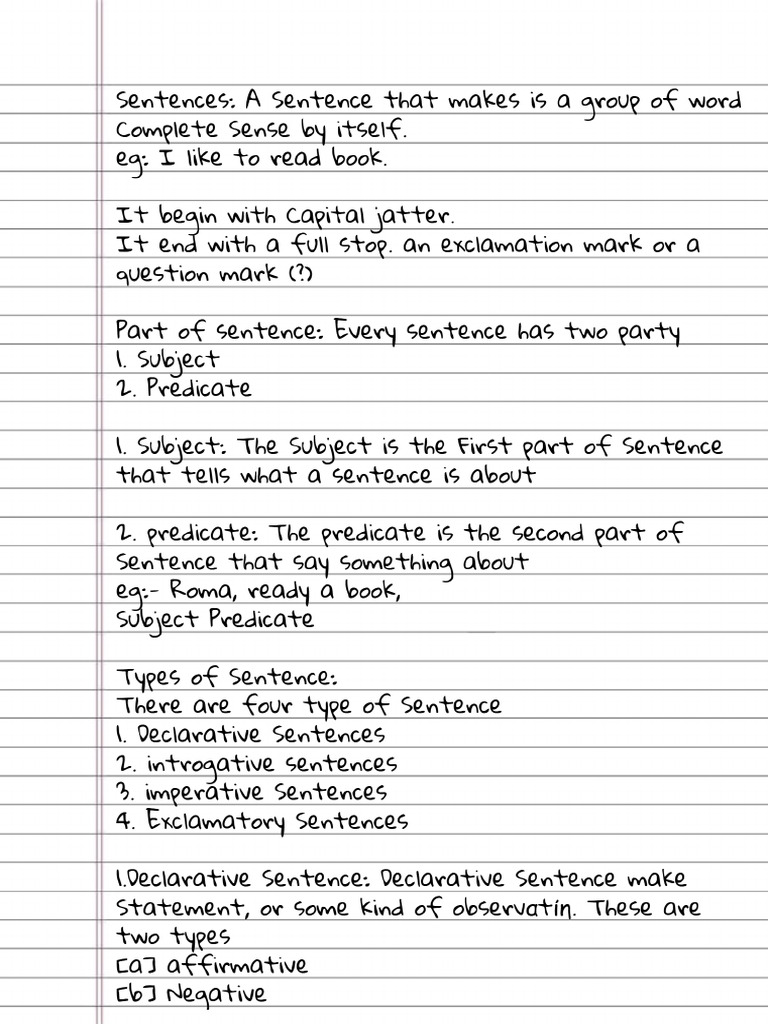 Sentences: A Sentence that makes is a group of word
Complete Sense by itself.
eg: I like to read book.
It begin with Capital jatter.
It end with a full stop. an exclamation mark or a
question mark (?)
Part of sentence: Every sentence has two party
1. Subject
2. Predicate
1. Subject: The Subject is the First part of Sentence
that tells what a sentence is about
2. predicate: The predicate is the second part of
Sentence that say something about
eg:- Roma, ready a book,
Subject Predicate
Types of Sentence:
There are four type of Sentence
1. Declarative Sentences
2. introgative sentences
3. imperative Sentences
4. Exclamatory Sentences
1.Declarative Sentence: Declarative Sentence make
Statement, or some kind of observatín. These are
two types
[a] affirmative
[b] Negative